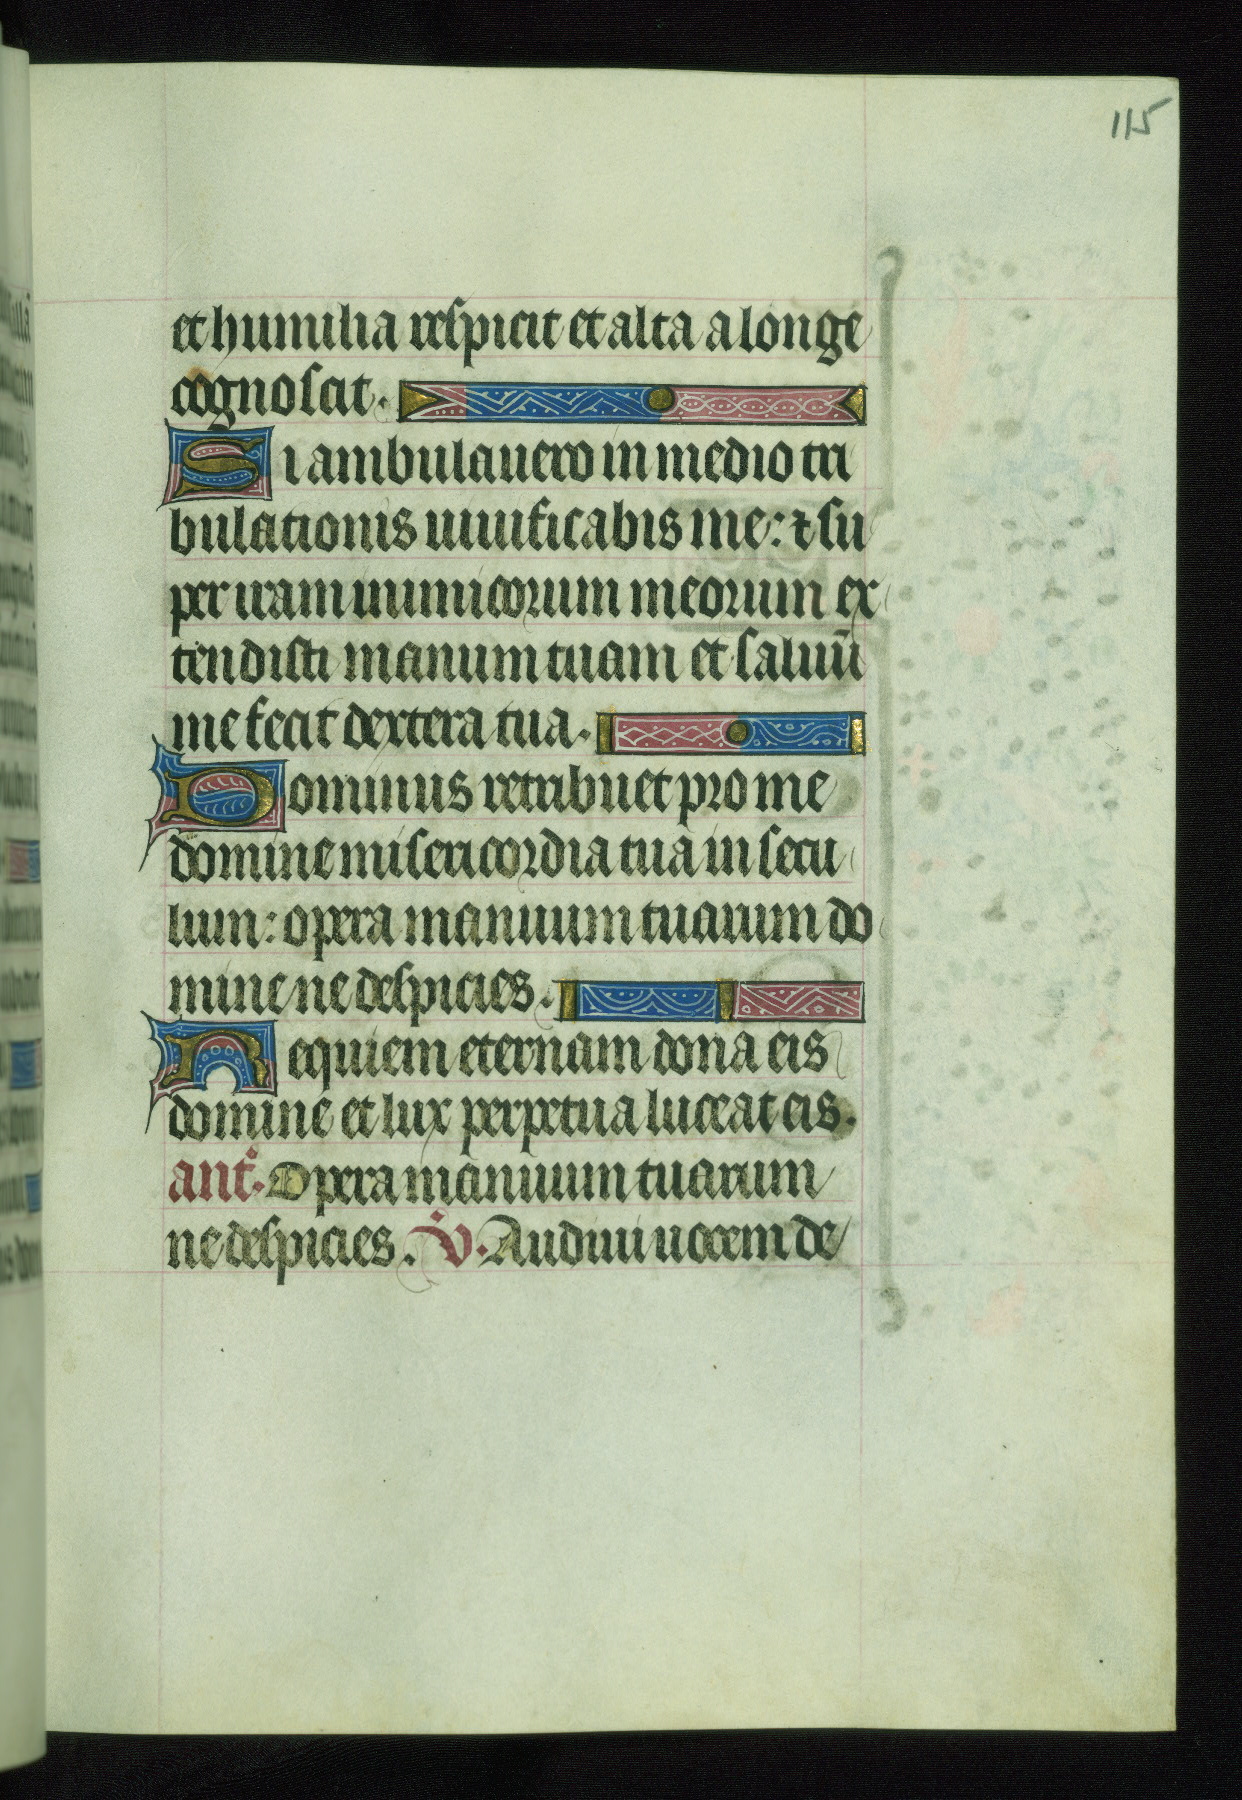 115
et humilia respicit et alta a longe
cognoscit.
Si ambulauero in medio tri
bulationis uiuificabis me: ⁊ su
per iram inimicorum meorum ex
tendisti manum tuam et saluū
me fecit dextera tua.
Dominus retribuet pro me
domine misericordia tua in secu
lum: opera manuum tuarum do
mine ne despicies.
Requiem eternam dona eis
domine et lux perpetua luceat eis.
ant̄. Opera manuum tuarum
ne despicies. V̄. Audiui uocem de